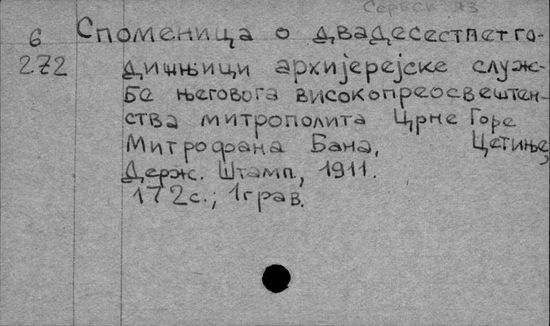 Сербск. яз
6 Споменица о двадесестпетго-
272 дишњици архијерејске служ-
бе његовога високопреосвештен-
ства митрополита Црне Горе
Митрофана Бана, Цетиње,
Держ. Штамп, 1911.
172с.; 1грав.